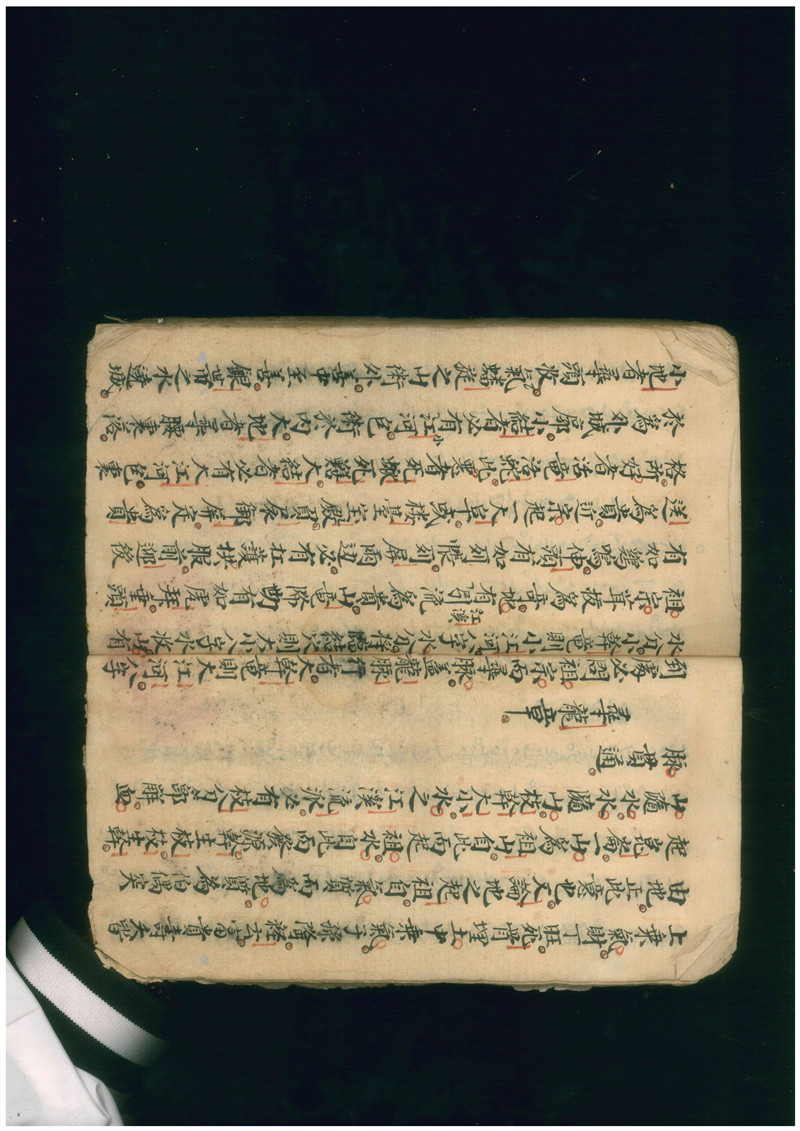 上乗氣財丁旺死骨埋土中乗氣子孫陰經云富貴壽夭皆
由地正此意也又論地之起祖自氣質而為地質為伯偶突
起崑崙一山為祖山自此而起祖水自此而發源幹生枝枝生幹
山隨水水隨山枝幹大小水之江溪流派必有枝分節觧血
脉貫通
尋龍章
到處必問祖宗而尋脉盖龍脉行者大幹竜則大江河八字
水分小幹竜則小江河八字水分将臨結穴則大小八字水收山有
祖宗茸拔為竒地有江溪引流為貴山竜降勢有如虎拜垂頭
有如鷄鳴伸頭有如列帳列屏兩边必有扛護拱服前迎後
送為貴近宗起一大阜或楼䑓宝殿負扆御屏定為貴
格所好者活竜活蛇此悪者死鰍死鱔大結者必有大江河包裹
於為外城廓小結者必有小江河包術於内大地者尋腰裏落
小地者尋頭收氣蟠旋之山術外善中至善銀帯之水遶城